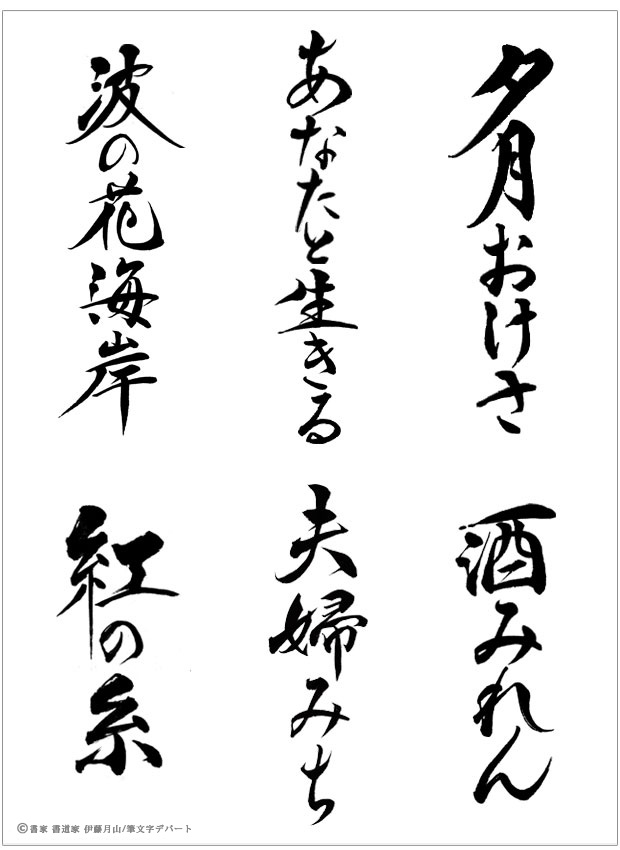 夕月おけさ
あなたと生きる
波の花海岸
酒みれん
夫婦みち
紅の糸
©書家 書道家 伊藤月山/筆文字デパート